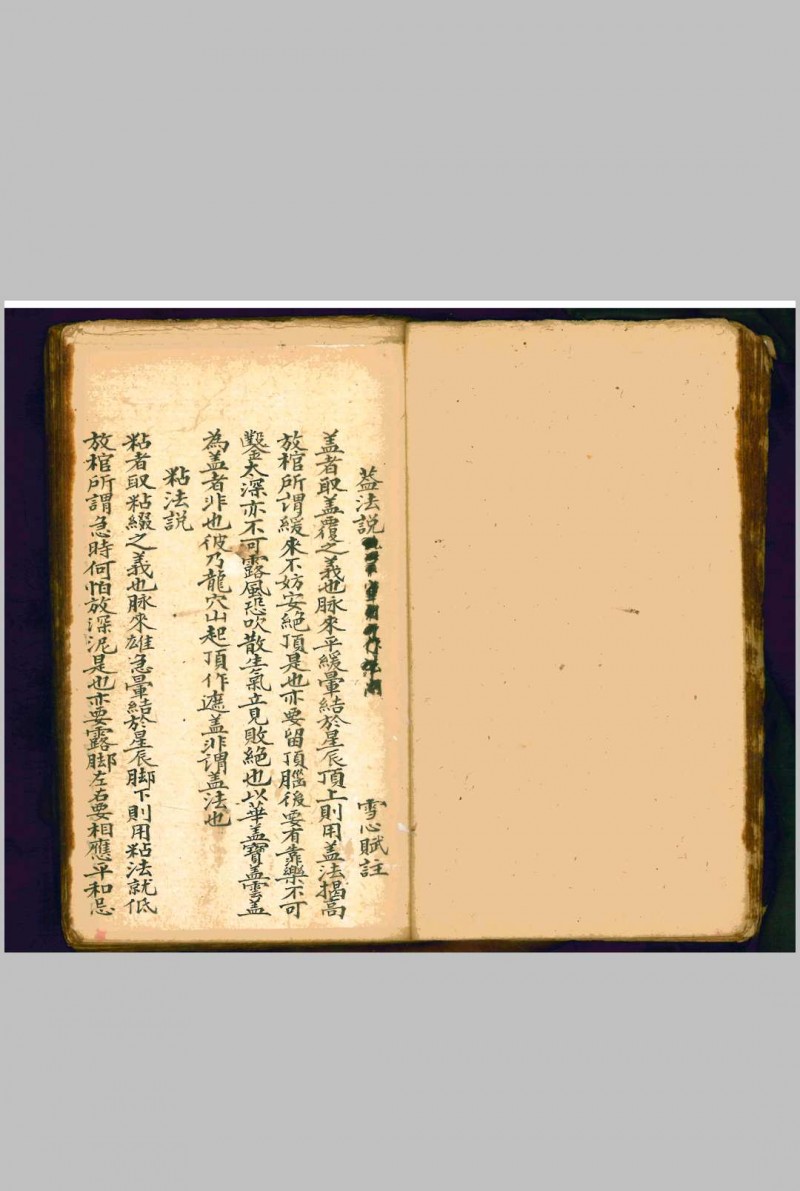 葢法説 雪心賦註
盖者取盖覆之義也脉來平緩暈結於星辰頂上則用盖法揭高
放棺所谓緩來不妨安絶頂是也亦要留頂腦後要有靠樂不可
鑿太深亦不可露風恐吹散生氣立見敗絶也以華盖寶盖雲盖
為盖者非也彼乃龍穴山起頂作遮盖非謂盖法也
粘法説
粘者取粘綴之義也脉來雄急暈結於星辰脚下則用粘法就低
放棺所謂急時何怕放深泥是也亦要露脚左右要相應平和忌